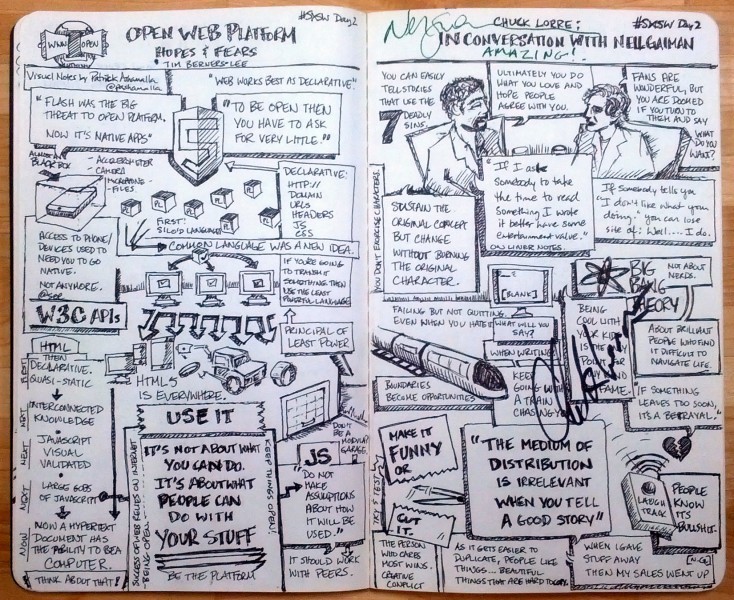 #SXSW Day 2
WWW OPEN
OPEN WEB PLATFORM
HOPES & FEARS
• TIM BERNERS-LEE
VISUAL NOTES by
"FLASH WAS THE BIG
THREAT TO OPEN PLATFORM.
NOW IT'S NATIVE APPS"
"WEB WORKS BEST AS DECLARATIVE."
"TO BE OPEN THEN
YOU HAVE TO ASK
FOR VERY LITTLE."
5
ALMOST AN
BLACK BOX
- ACCELEROMETER
- CAMERA
- FILES
DECLARATIVE:
HTTP://
DOMAIN
URLS
HEADERS
JS
CSS
PL PL PL PL PL PL
FIRST:
SILO'D LANGUAGE
COMMON LANGUAGE WAS A NEW IDEA.
ACCESS TO PHONE/
DEVICES USED TO
NEED YOU TO GO
NATIVE.
NOT ANYMORE.
W3C APIs
IF YOU'RE GOING
TO TRANSMIT
SOMETHING THEN
USE THE LEAST
POWERFUL LANGUAGE
PRINCIPAL OF
LEAST POWER
HTML
FIRST
THEN
DECLARATIVE.
QUASI-STATIC
NEXT
INTERCONNECTED
KNOWLEDGE
NEXT
• JAVASCRIPT
VISUAL
VALIDATED
NEXT
LARGE GOBS
OF JAVASCRIPT
NOW
NOW A HYPERTEXT
DOCUMENT HAS
THE ABILITY TO BE A
COMPUTER.
THINK ABOUT THAT!
HTML5
IS EVERYWHERE.
USE IT
IT'S NOT ABOUT WHAT
YOU CAN DO.
IT'S ABOUT WHAT
PEOPLE CAN
DO WITH
YOUR STUFF
BE THE PLATFORM
SUCCESS OF WEB RELIES ON INTERNET
BEING OPEN.
KEEP THINGS OPEN!
DON'T
BE A
GARAGE.
JS
"DO NOT
MAKE
ASSUMPTIONS
ABOUT HOW
IT WILL BE
USED."
IT SHOULD WORK
WITH PEERS.
CHUCK LORRE:
#SXSW Day 2
IN CONVERSATION WITH NEIL GAIMAN
AMAZING!
YOU CAN EASILY
TELL STORIES
THAT USE THE
7 DEADLY
SINS.
ULTIMATELY YOU DO
WHAT YOU LOVE AND
HOPE PEOPLE
AGREE WITH YOU.
FANS ARE
WONDERFUL, BUT
YOU ARE DOOMED
IF YOU TURN TO
THEM AND SAY
WHAT DO
YOU WANT?
YOU DON'T EXORCISE CHARACTERS.
SUSTAIN THE
ORIGINAL CONCEPT
BUT CHANGE
WITHOUT BURNING
THE ORIGINAL
CHARACTER.
"If I ask
Somebody to take
the time to read
Something I wrote
it better have some
Entertainment value."
ON LINER NOTES.
If Somebody tells you
"I don't like what your
doing." you can lose
site of: Well.... I do.
[BLANK]
WHAT WILL YOU
SAY?
BIG
BANG
THEORY
NOT ABOUT
NERDS.
ABOUT BRILLIANT
PEOPLE WHO FIND
IT DIFFICULT TO
NAVIGATE LIFE.
FAILING BUT NOT QUITTING.
EVEN WHEN YOU HATE IT
WHEN WRITING
KEEP
GOING WITH
A TRAIN
CHASING YOU
BEING
COOL WITH
YOUR KIDS
IS THE
POINT FOR
FAME.
BOUNDARIES
BECOME OPPORTUNITIES
"IF SOMETHING
LEAVES TOO SOON,
ITS A BETRAYAL."
TRY & TEST
MAKE IT
FUNNY
OR
CUT IT.
"THE MEDIUM OF
DISTRIBUTION
IS IRRELEVANT
WHEN YOU TELL
A GOOD STORY"
LAUGH
TRACK
PEOPLE
KNOW
ITS
BULLSHIT.
THE PERSON
WHO CARES
MOST WINS.
CREATIVE
CONFLICT
AS IT GETS EASIER TO
DUPLICATE, PEOPLE LIKE
THINGS... BEAUTIFUL
THINGS THAT ARE HARD TO COPY.
WHEN I GAVE
STUFF AWAY
THEN MY SALES WENT UP
[N.G.]